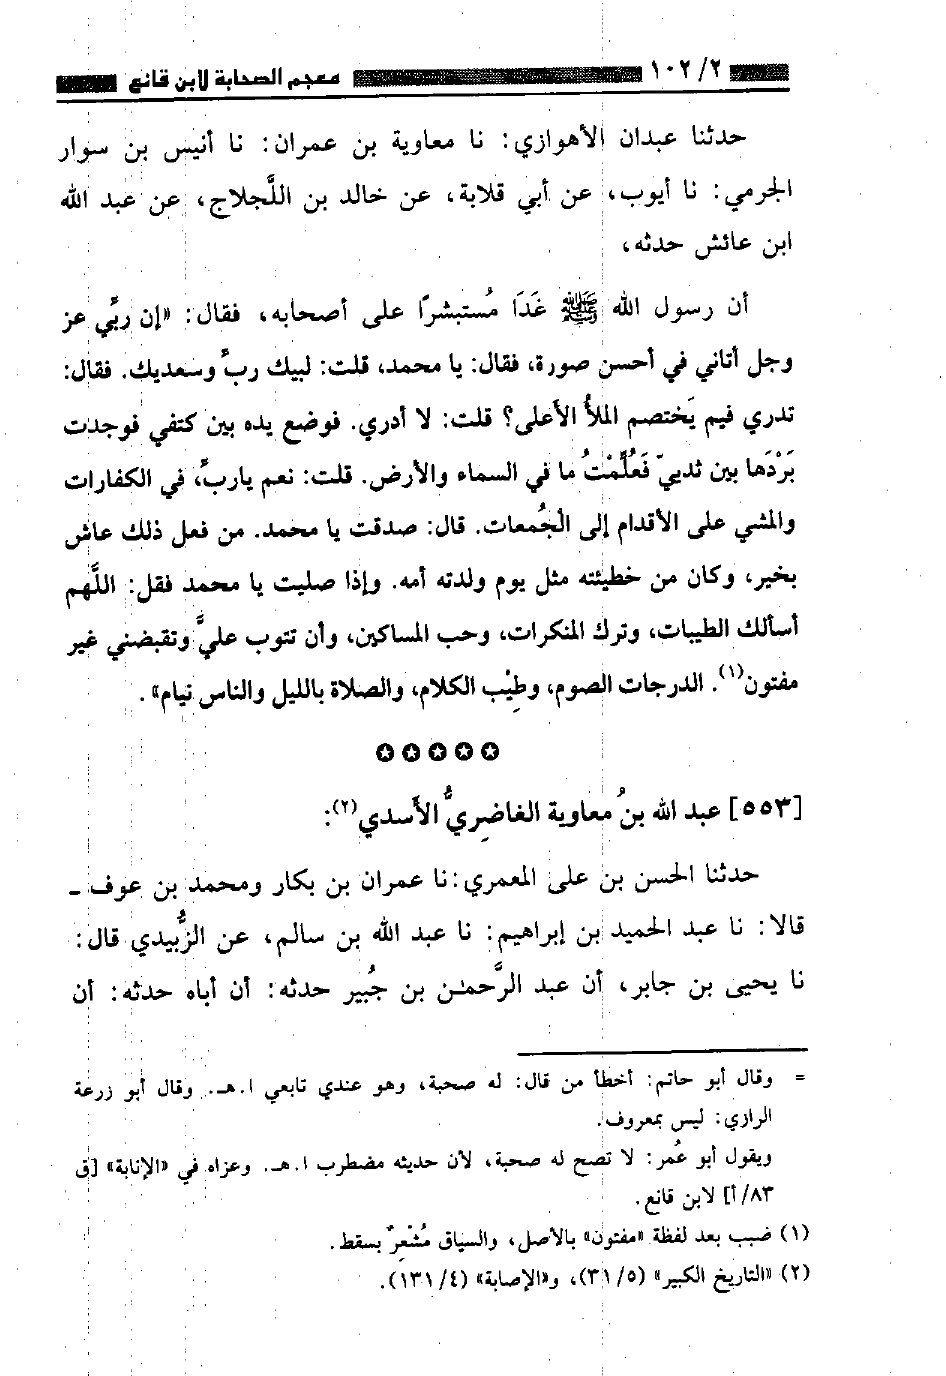 ٢/ ١٠٢ معجم الصحابة لابن قانع
حدثنا عبدان الأهوازي: نا معاوية بن عمران: نا أنيس بن سوار
الجرمي: نا أيوب، عن أبي قلابة، عن خالد بن اللَّجلاج، عن عبد الله
ابن عائش حدثه،
أن رسول الله ﷺ غَدَا مُستبشرًا على أصحابه، فقال: «إن ربِّي عز
وجل أتاني في أحسن صورة، فقال: يا محمد، قلت: لبيك ربِّ وسعديك. فقال:
تدري فيم يَختصم الملأُ الأَعلى؟ قلت: لا أدري. فوضع يده بين كتفي فوجدت
بَرْدَها بين ثدييّ فَعُلِّمْتُ ما في السماء والأرض. قلت: نعم يارب، في الكفارات
والمشي على الأقدام إلى الْجُمعات. قال: صدقت يا محمد. من فعل ذلك عاش
بخير، وكان من خطيئته مثل يوم ولدته أمه. وإذا صليت يا محمد فقل: اللَّهم
أسألك الطيبات، وترك المنكرات، وحب المساكين، وأن تتوب عليَّ وتقبضني غير
مفتون(١). الدرجات الصوم، وطِيْب الكلام، والصلاة بالليل والناس نيام» .
[٥٥٣] عبد الله بنُ معاوية الغاضِريُّ الأَسدي(٢):
حدثنا الحسن بن على المعمري: نا عمران بن بكار ومحمد بن عوف ـ
قالا: نا عبد الحميد بن إبراهيم: نا عبد الله بن سالم، عن الزُّبيدي قال:
نا يحيى بن جابر، أن عبد الرَّحمـٰن بن جُبير حدثه: أن أباه حدثه: أن
= وقال أبو حاتم: أخطأ من قال: له صحبة، وهو عندي تابعي ا. هـ. وقال أبو زرعة
الرازي: ليس بمعروف.
ويقول أبو عُمر: لا تصح له صحبة، لأن حديثه مضطرب ا. هـ. وعزاه في «الإنابة» [ق
٨٣/ أ] لابن قانع.
(١) ضبب بعد لفظة «مفتون» بالأصل، والسياق مُشْعِرٌ بسقط.
(٢) «التاريخ الكبير» (٥/ ٣١)، و«الإصابة» (٤/ ١٣١).